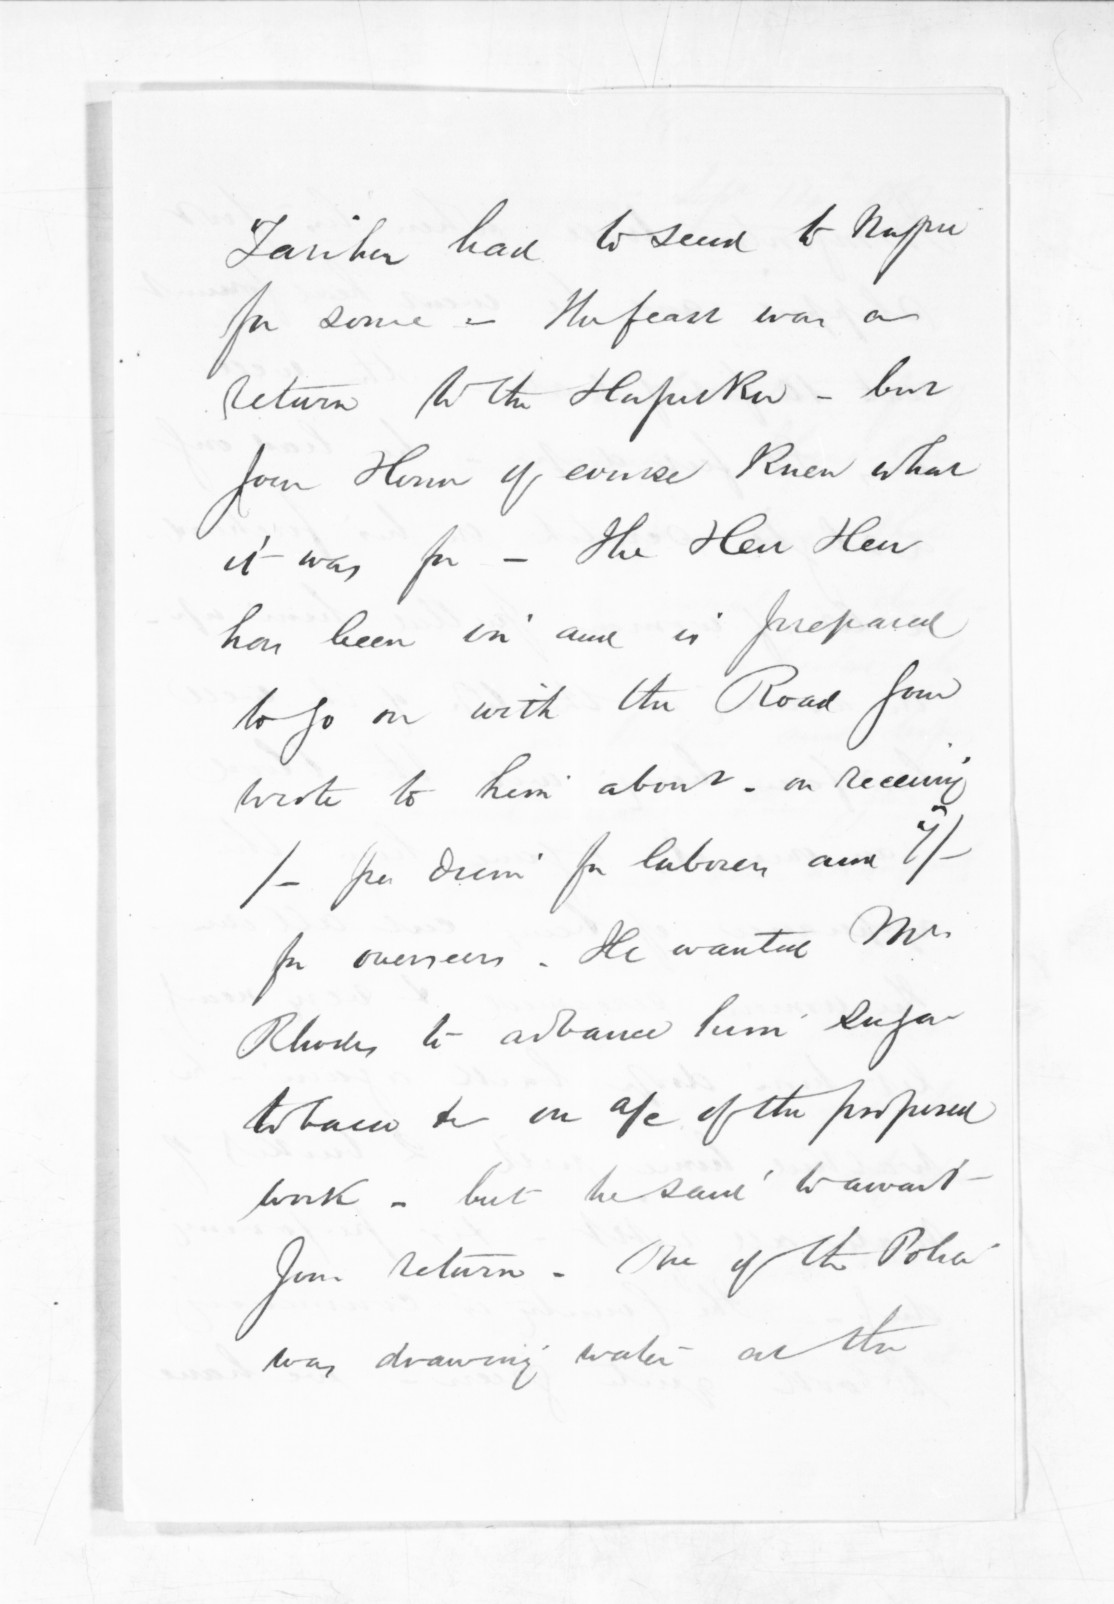 Tariha had to send to Napier
for some - The feast was a
return to the Hapuku - but
your Honor of course knew what
it was for - The Heu Heu
has been in and is prepared
to go on with the Road you
wrote to him about - on receiving
/- per diem for laborers and 7/-
for overseers - He wanted Mr
Rhodes to advance him sugar
tobacco &c on a/c of the proposed
work - but he said to await
your return - One of the Police
was drawing water at the